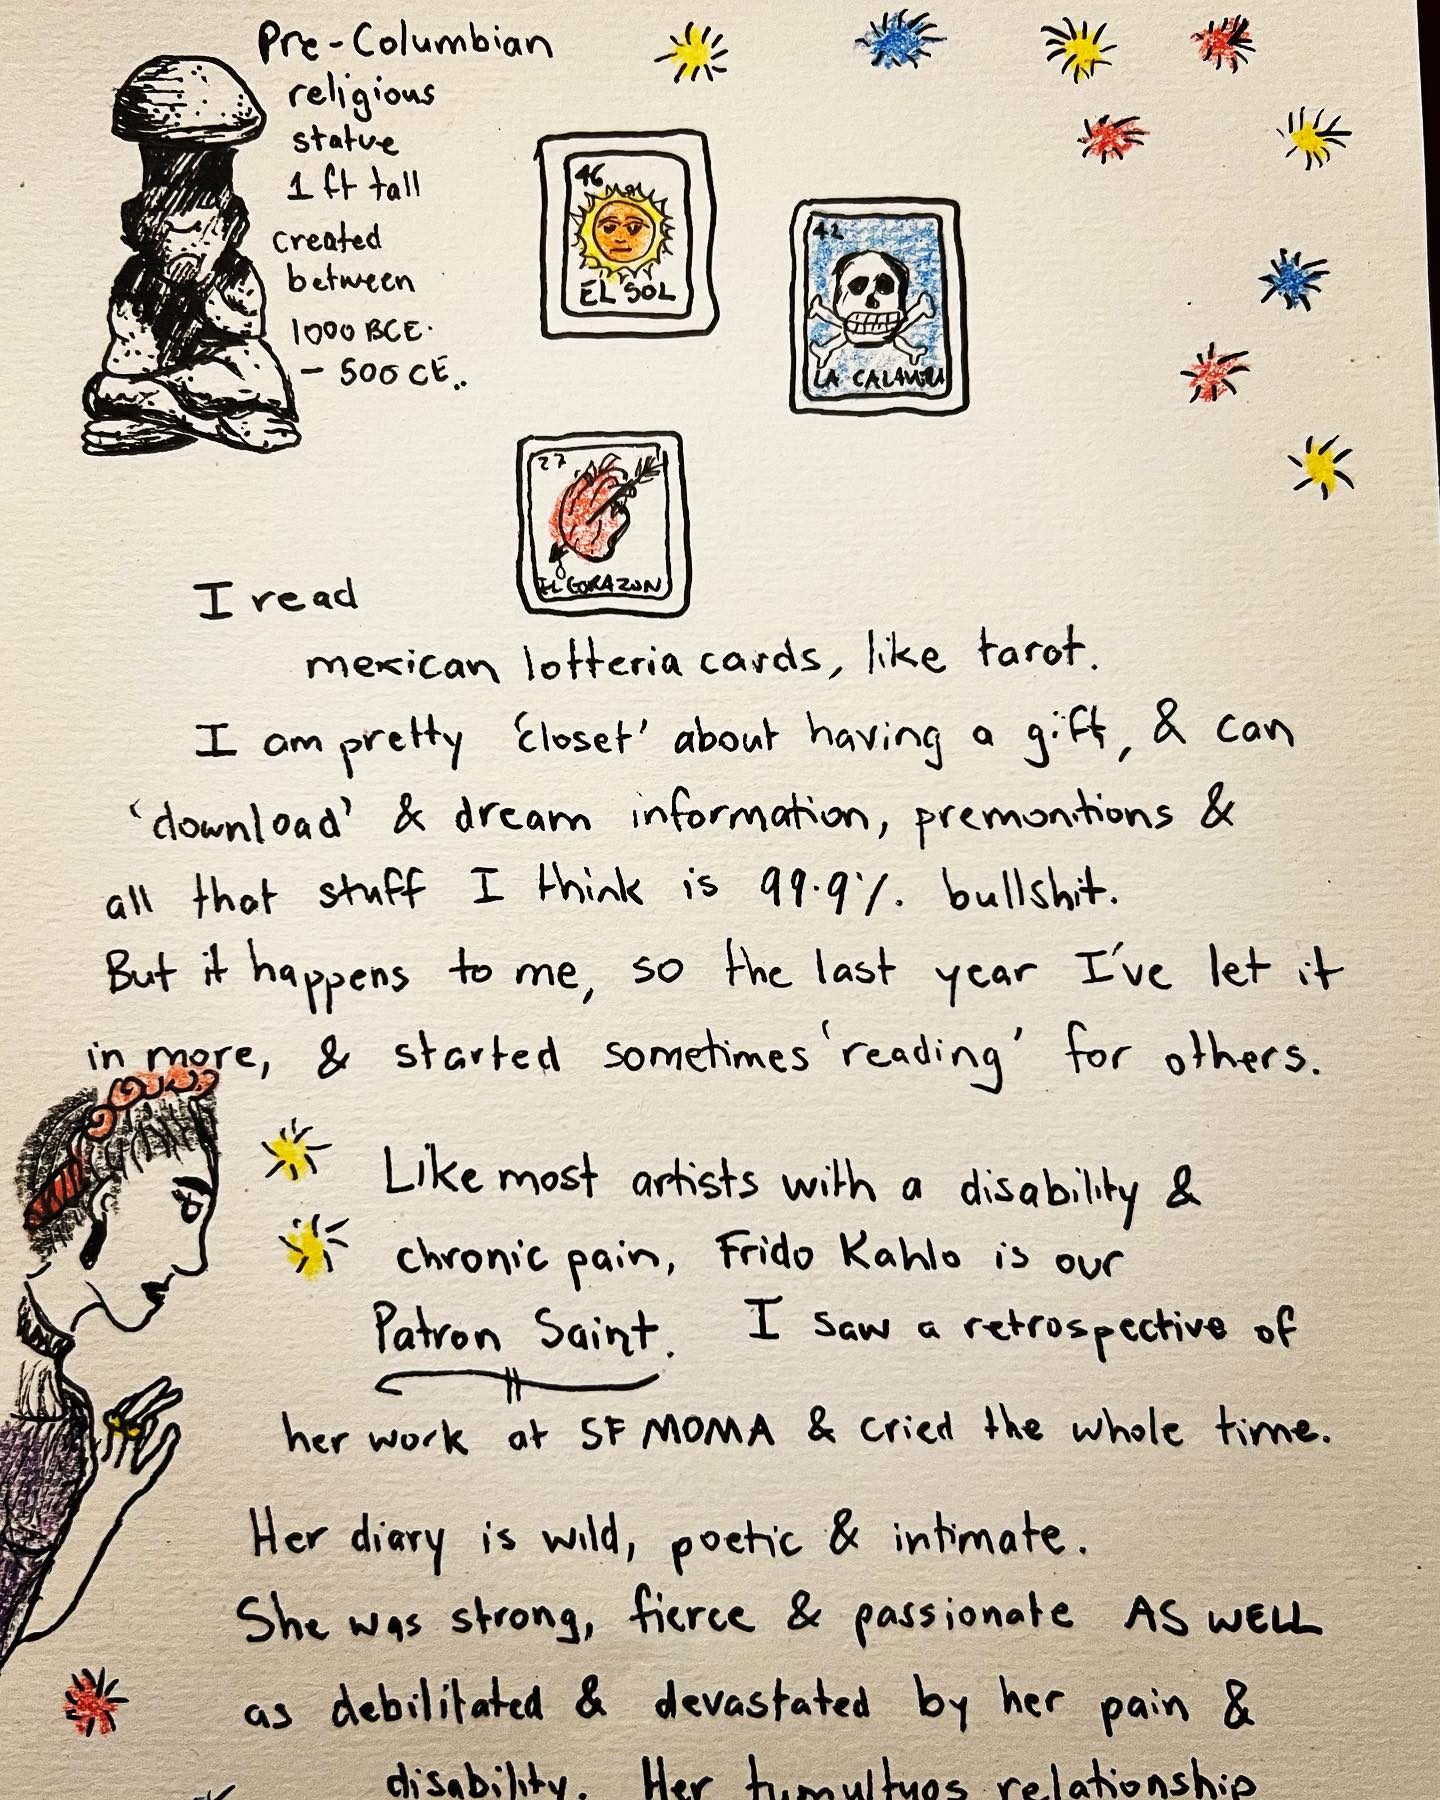 Pre-Columbian
religious
statue
1 ft tall
created
between
1000 BCE.
- 500 CE..
46
EL SOL
42
LA CALAVERA
27
EL CORAZON
I read
mexican lotteria cards, like tarot.
I am pretty 'closet' about having a gift, & can
'download' & dream information, premonitions &
all that stuff I think is 99.9%. bullshit.
But it happens to me, so the last year I've let it
in more, & started sometimes 'reading' for others.
Like most artists with a disability &
chronic pain, Frido Kahlo is our
Patron Saint. I saw a retrospective of
her work at SF MOMA & cried the whole time.
Her diary is wild, poetic & intimate.
She was strong, fierce & passionate AS WELL
as debilitated & devastated by her pain &
disability. Her tumultuos relationship